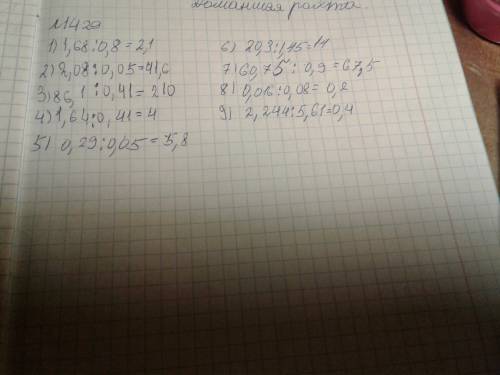 Домашня робота.
№429
1) 1,68:0,8=2,1
2) 2,08:0,05=41,6
3) 86,1:0,41=210
4) 1,64:0,41=4
5) 0,29:0,05=5,8
6) 20,3:1,45=14
7) 60,75:0,9=67,5
8) 0,016:0,08=0,2
9) 2,244:5,61=0,4